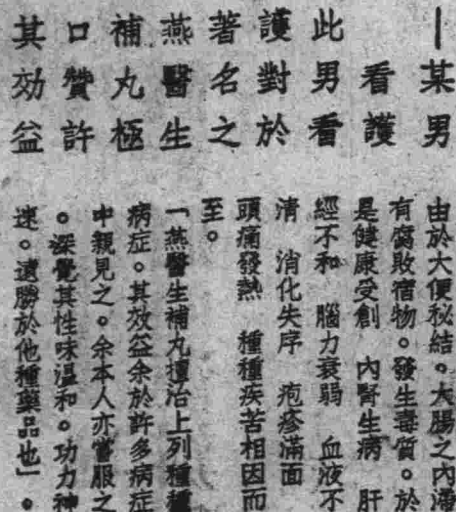 —某男
看護
此男看
護對於
著名之
燕醫生
補丸極
口贊許
其効益
由於大便秘結。大腸之內滯
有腐敗宿物。發生毒質。於
是健康受創 內腎生病 肝
經不和 腦力衰弱 血液不
清 消化失序 疱疹滿面
頭痛發熱 種種疾苦相因而
至。
「燕醫生補丸擅治上列種種
病症。其效益余於許多病症
中親見之。余本人亦嘗服之
。深覺其性味溫和。功力神
速。遠勝於他種藥品也」。